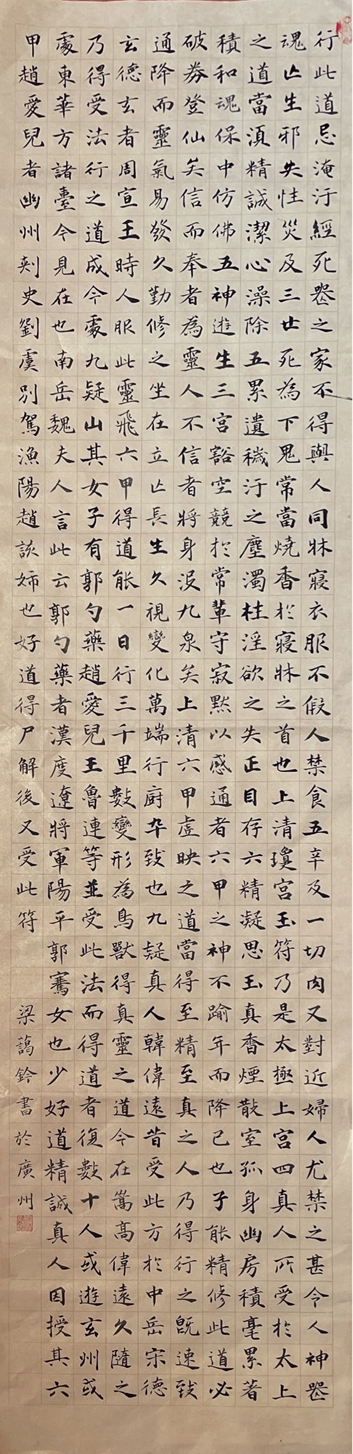 行此道忌淹汙經死喪之家不得與人同牀寢衣服不假人禁食五辛及一切肉又對近婦人尤禁之甚令人神喪
魂亡生邪失性災及三世死為下鬼常當燒香於寢牀之首也上清瓊宮玉符乃是太極上宮四真人所受於太上
之道當須精誠潔心澡除五累遺穢汙之塵濁杜淫欲之失正目存六精凝思玉真香煙散室孤身幽房積毫累著
積和魂保中仿佛五神遊生三宮豁空競於常輩守寂默以感通者六甲之神不踰年而降已也子能精修此道必
破券登仙矣信而奉者為靈人不信者將身沒九泉矣上清六甲虛映之道當得至精至真之人乃得行之既速致
通降而靈氣易發久勤修之坐在立亡長生久視變化萬端行廚卒致也九疑真人韓偉遠昔受此方於中岳宋德
玄德玄者周宣王時人服此靈飛六甲得道能一日行三千里數變形為鳥獸得真靈之道今在嵩高偉遠久隨之
乃得受法行之道成今處九疑山其女子有郭勺藥趙愛兒王魯連等並受此法而得道者復數十人或遊玄州或
處東華方諸臺今見在也南岳魏夫人言此云郭勺藥者漢度遼將軍陽平郭騫女也少好道精誠真人因授其六
甲趙愛兒者幽州刺史劉虞別駕漁陽趙該姊也好道得尸解後又受此符
梁藹鈴書於廣州